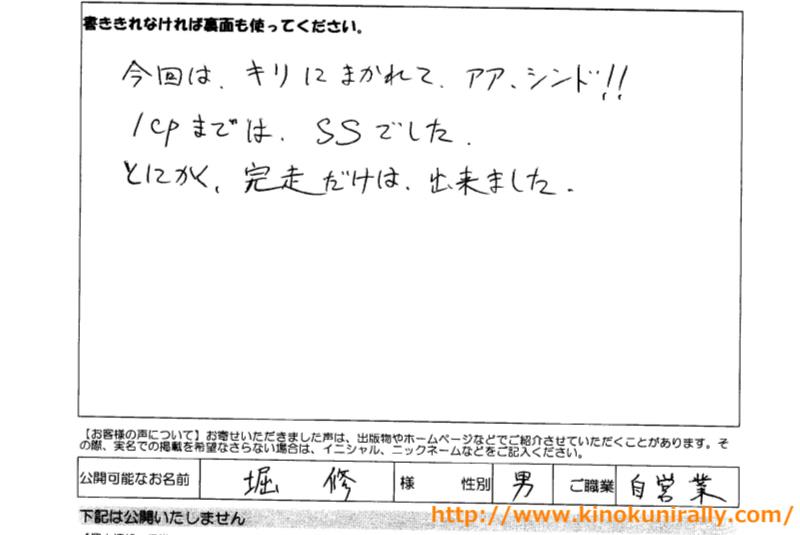 書ききれなければ裏面も使ってください。
今回は、キリにまかれて、アア、シンド!!
1cpまでは、SSでした。
とにかく、完走だけは、出来ました。
【お客様の声について】お寄せいただきました声は、出版物やホームページなどでご紹介させていただくことがあります。そ
の際、実名での掲載を希望なさらない場合は、イニシャル、ニックネームなどをご記入ください。
公開可能なお名前 堀 修 様 性別 男 ご職業 自営業
下記は公開いたしません
http://www.kinokunirally.com/